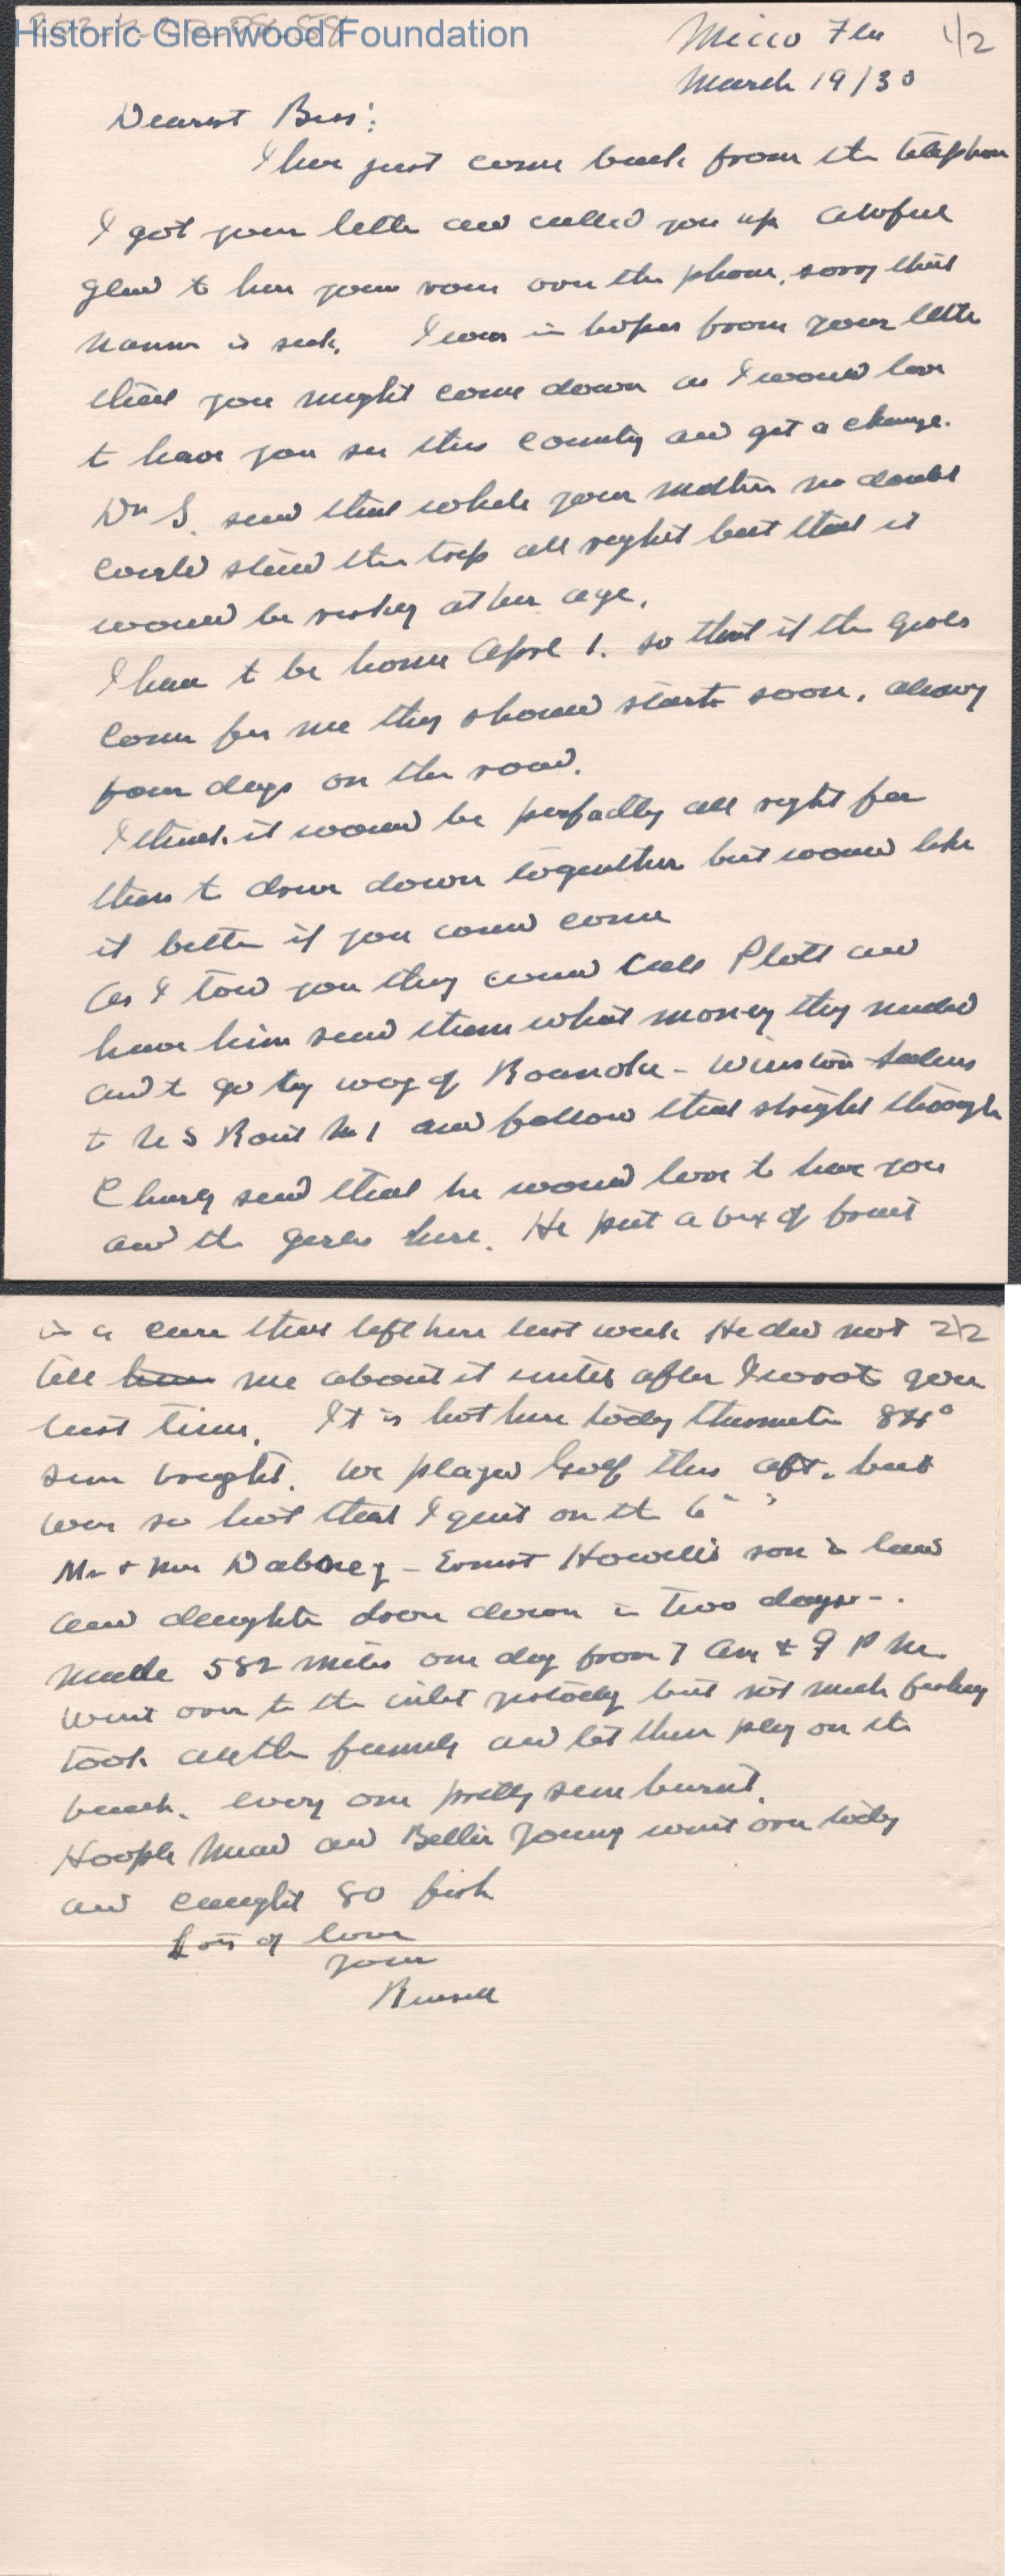 Historic Glenwood Foundation
Micco Fla 1/2
March 19/30
Dearest Bess:
I have just come back from the telephone
I got your letter and called you up awful
glad to hear your voice over the phone, sorry that
is sick, I was in hopes from your letter
that you might come down as I would love
to have you see this county and get a change.
Dr S. said that while your mother no doubt
could stand the trip all right but that it
would be risky at her age.
I have to be home Apl 1. so that if the girls
come for me they should start soon, allowing
four days on the road.
I think it would be perfactly all right for
them to drive down together but would like
it better if you could come
As I told you they could call Plott and
have him send them what money they needed
and to go by way of Roanoke - Winston-Salem
to U S Rout No 1 and follow that straight through
Charly said that he would love to have you
and the girls here. He put a box of fruit
in a care that left here last week He did not 2/2
tell me about it untill after I wrote you
last time. It is hot here today 84°
sun bright. We played Golf this aft. but
was so hot that I quit on the 6"
Mr & Mrs Dabney - Ernest Howell's son in law
and daughter drove down in two days-.
made 582 miles one day from 7 Am to 9 P M.
Went over to the inlet yestody but not much fishing
took all the family and let them play on the
beach. every one pretty sun burnt.
Hoople Mead and Young went over today
and caught 80 fish
Lots of love
your
Russell